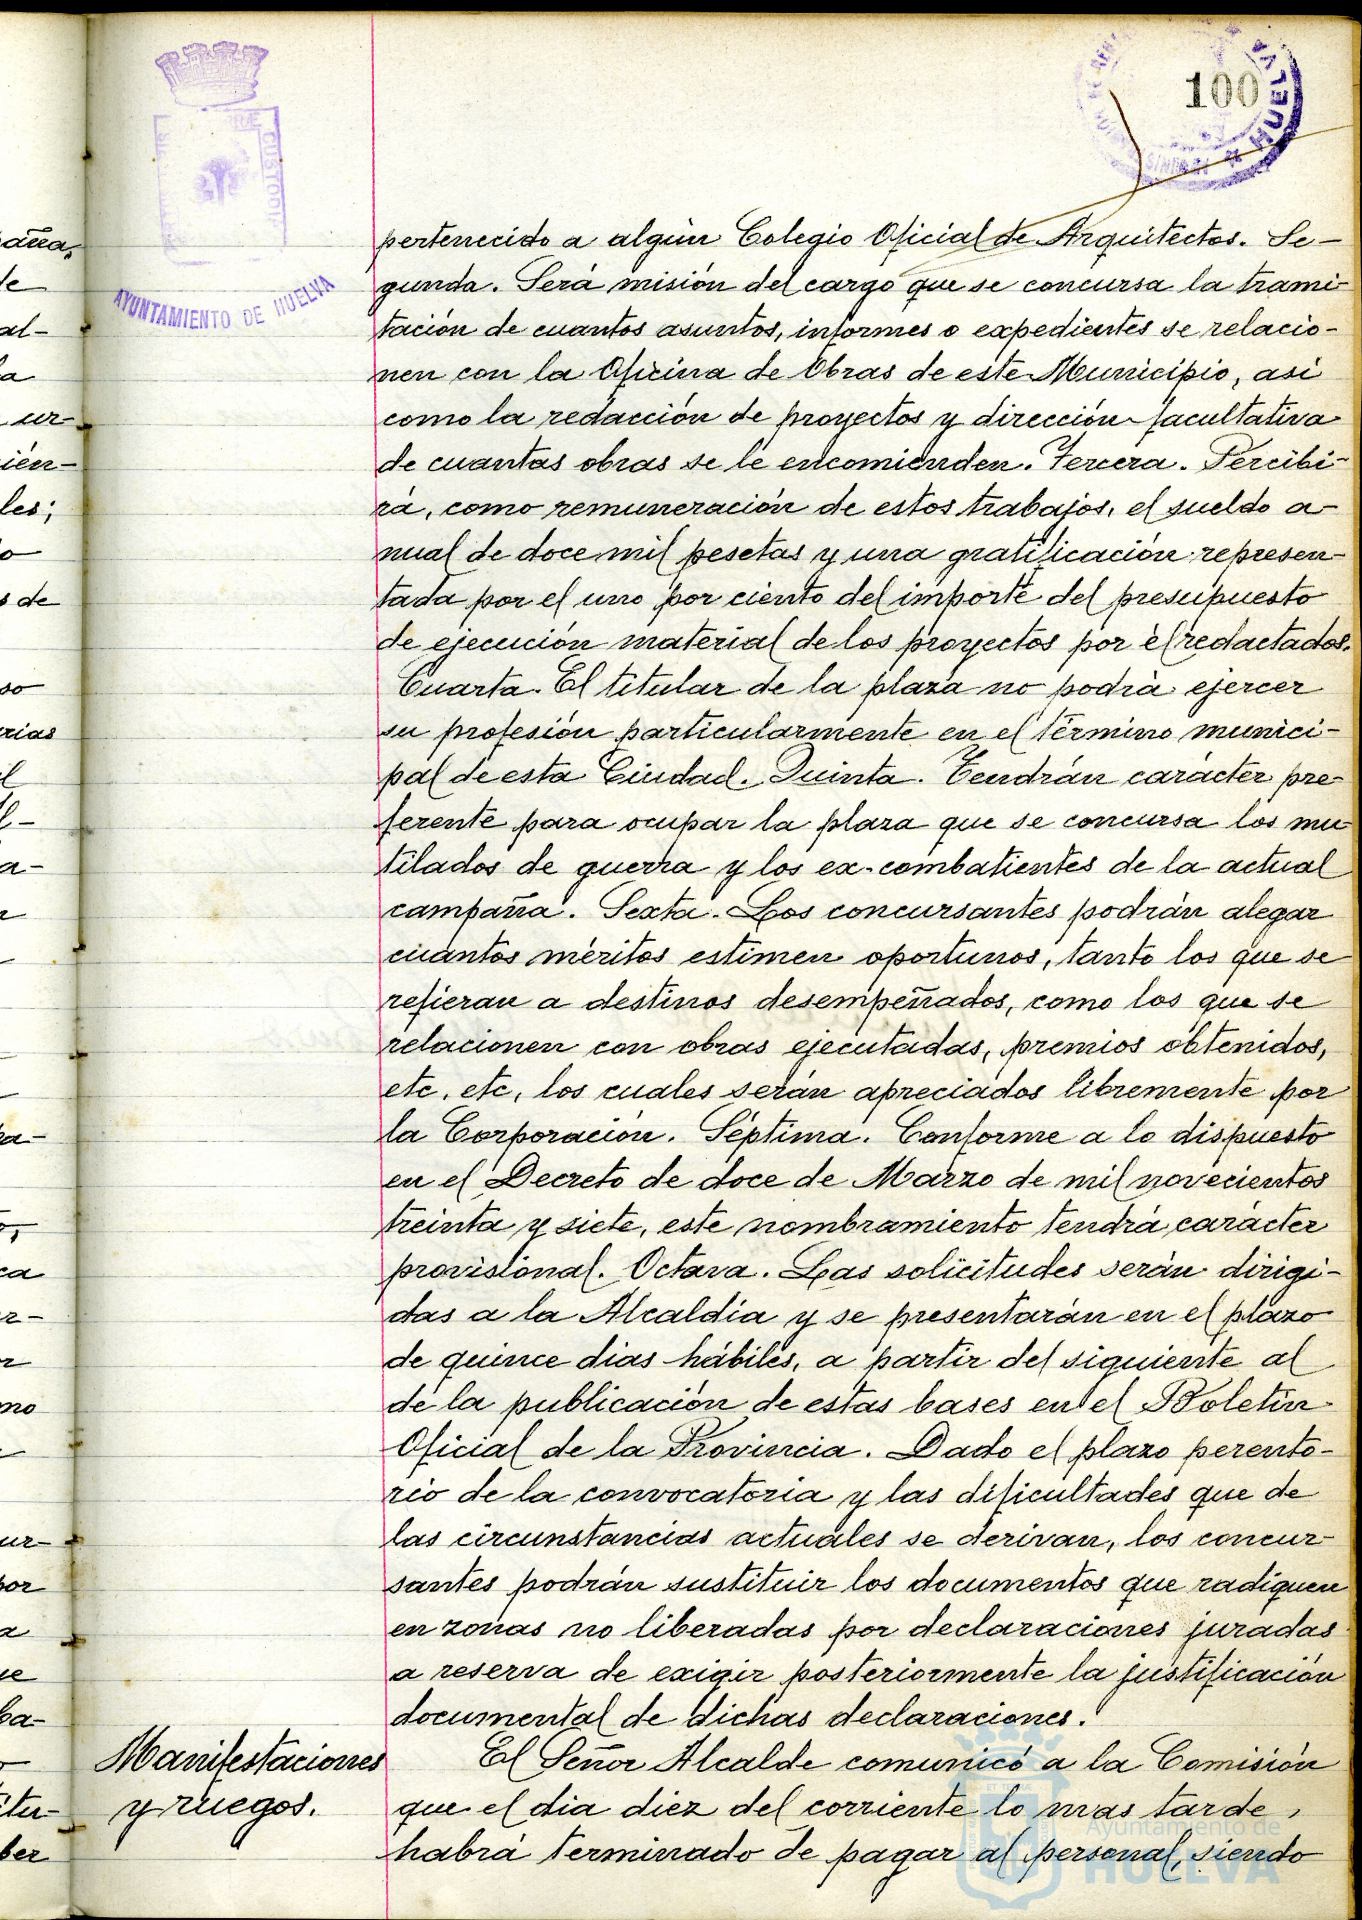 100
HUELVA
AYUNTAMIENTO DE HUELVA
pertenecido a algún Colegio Oficial de Arquitectos. Se-
gunda. Será misión del cargo que se concursa la trami-
tación de cuantos asuntos, informes o expedientes se relacio-
nen con la Oficina de Obras de este Municipio, asi
como la redacción de proyectos y dirección facultativa
de cuantas obras se le encomienden. Tercera. Percibi-
rá, como remuneración de estos trabajos, el sueldo a-
nual de doce mil pesetas y una gratificación represen-
tada por el uno por ciento del importe del presupuesto
de ejecución material de los proyectos por él redactados.
Cuarta. El titular de la plaza no podrá ejercer
su profesión particularmente en el término munici-
pal de esta Ciudad. Quinta. Tendrán carácter pre-
ferente para ocupar la plaza que se concursa los mu-
tilados de guerra y los ex-combatientes de la actual
campaña. Sexta. Los concursantes podrán alegar
cuantos méritos estimen oportunos, tanto los que se
refieran a destinos desempeñados, como los que se
relacionen con obras ejecutadas, premios obtenidos,
etc, etc, los cuales serán apreciados libremente por
la Corporación. Séptima. Conforme a lo dispuesto
en el Decreto de doce de Marzo de mil novecientos
treinta y siete, este nombramiento tendrá carácter
provisional. Octava. Las solicitudes serán dirigi-
das a la Alcaldía y se presentarán en el plazo
de quince dias hábiles, a partir del siguiente al
de la publicación de estas bases en el Boletín
Oficial de la Provincia. Dado el plazo perento-
rio de la convocatoria y las dificultades que de
las circunstancias actuales se derivan, los concur-
santes podrán sustituir los documentos que radiquen
en zonas no liberadas por declaraciones juradas
a reserva de exigir posteriormente la justificación
documental de dichas declaraciones.
Manifestaciones
y ruegos.
El Señor Alcalde comunicó a la Comisión
que el dia diez del corriente lo mas tarde,
habrá terminado de pagar al personal, siendo
Ayuntamiento de
HUELVA